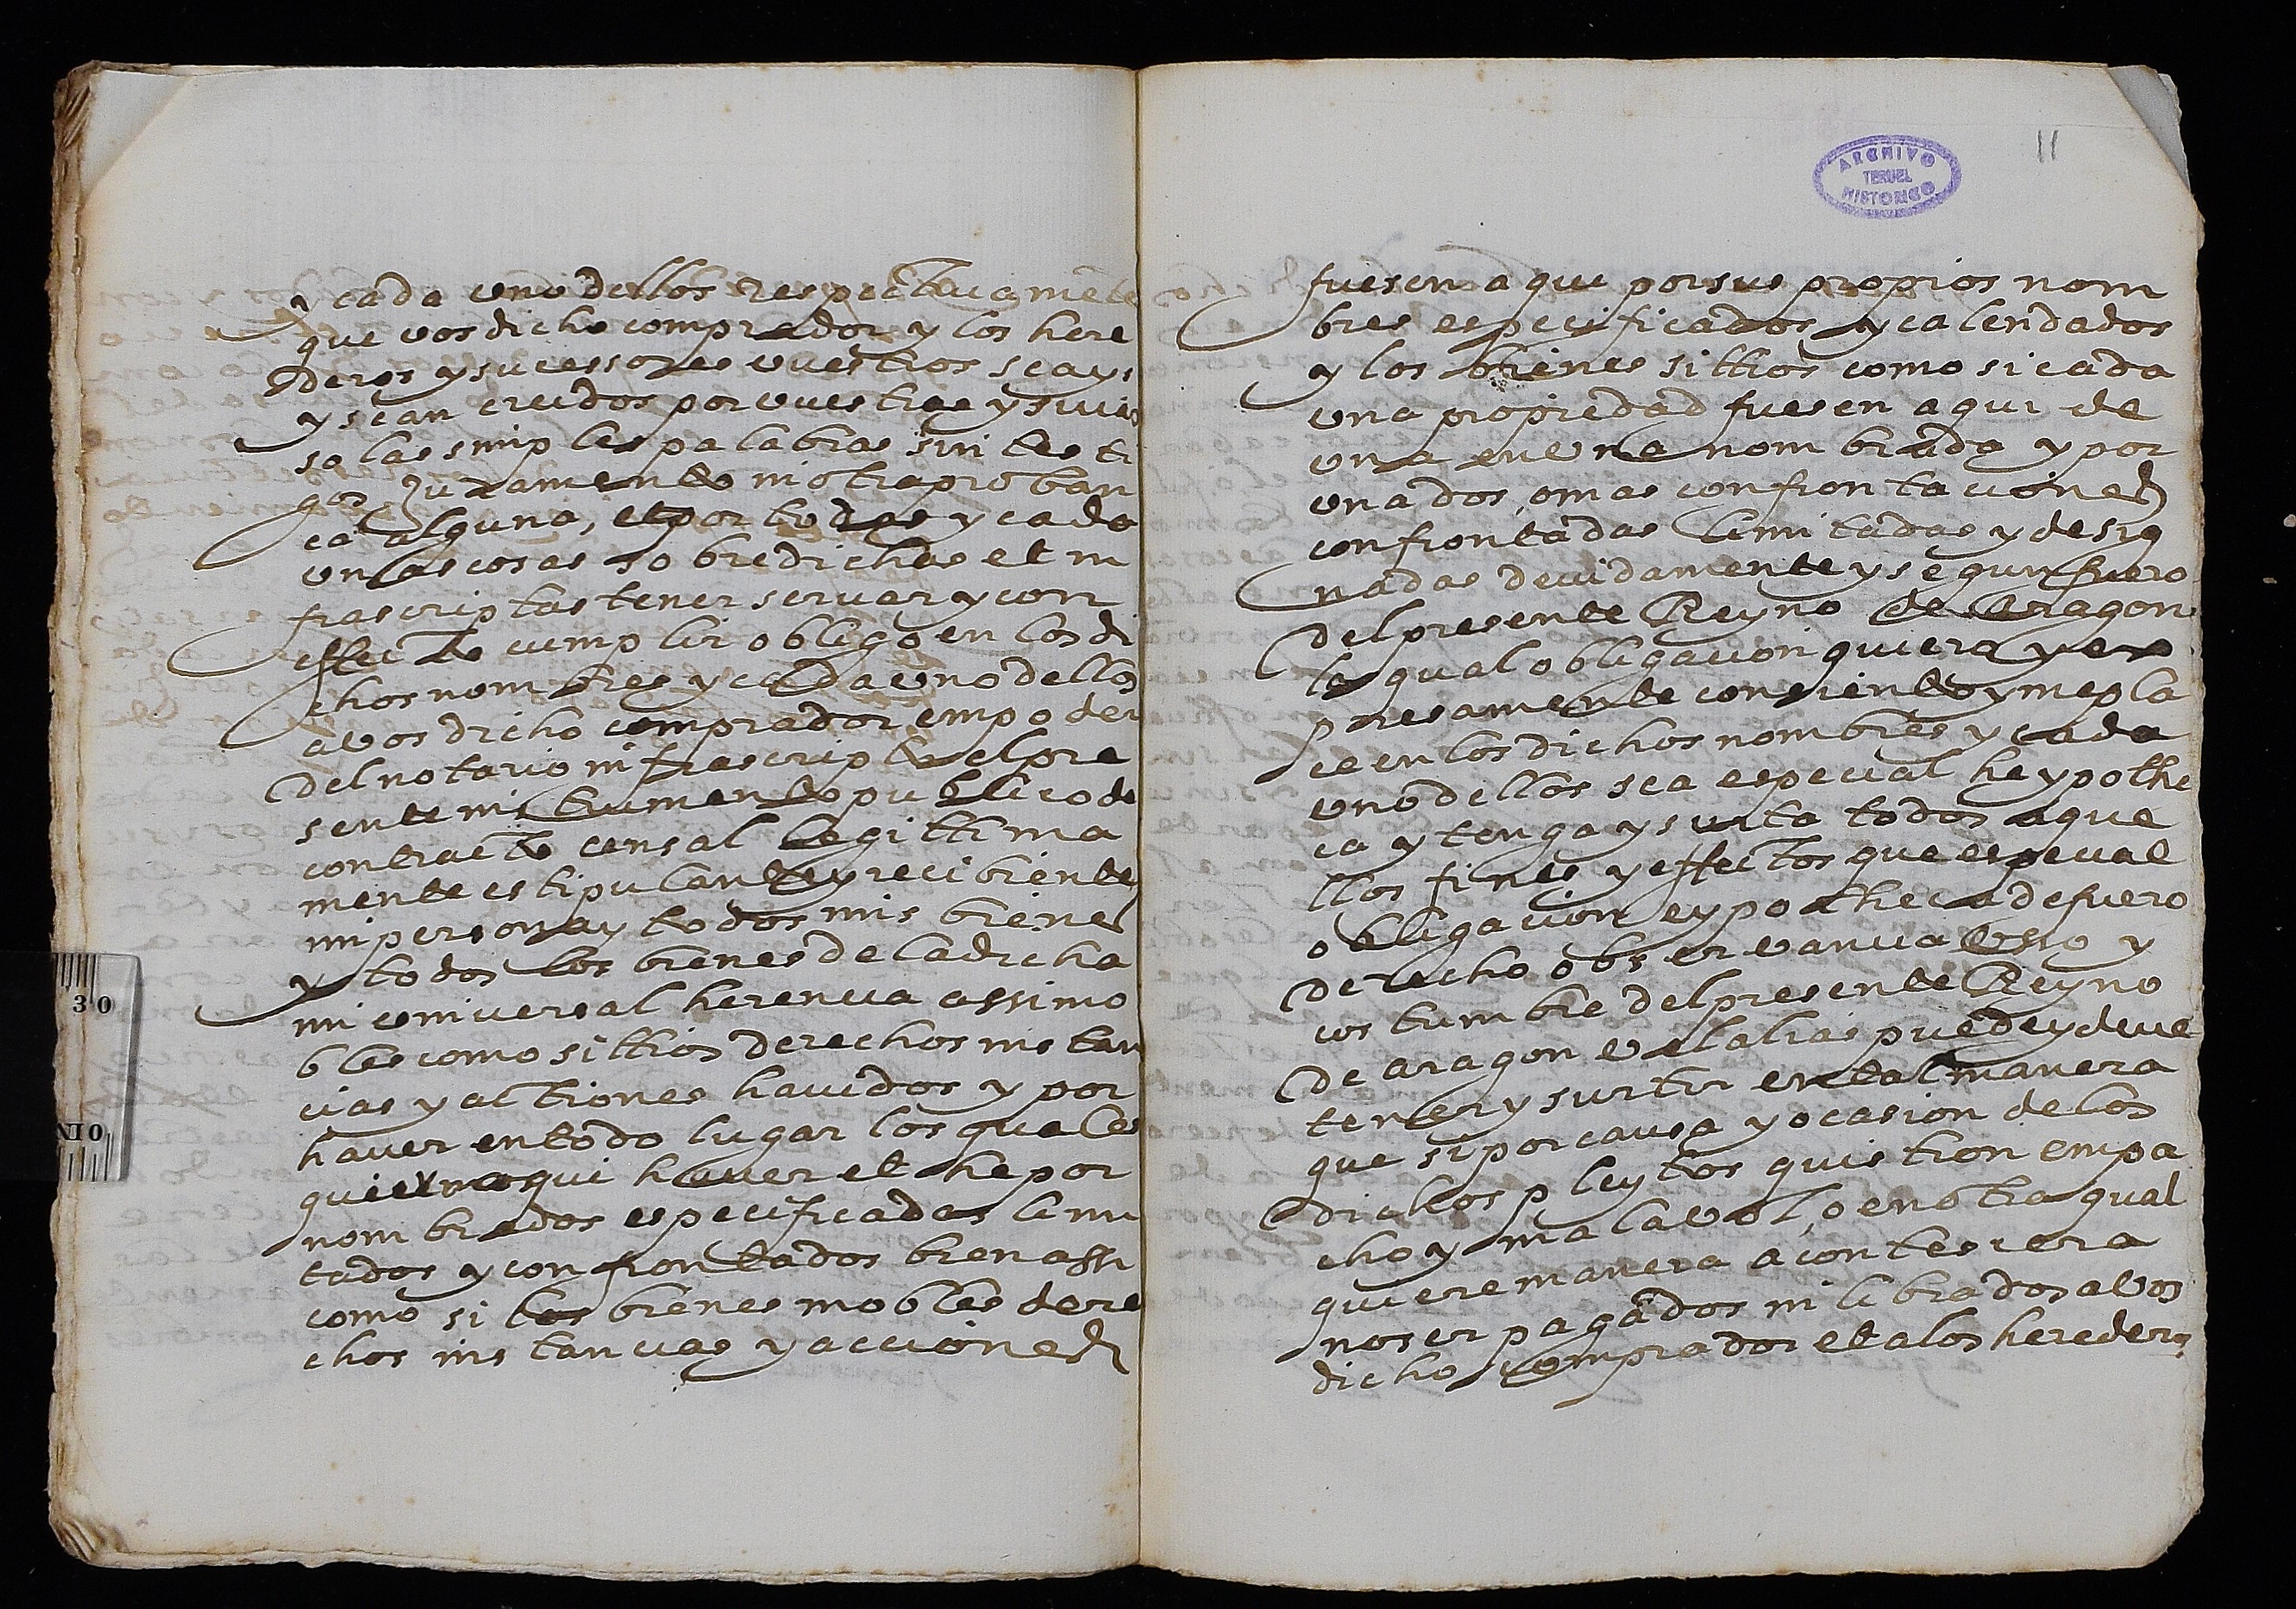 y cada uno dellos respectiuamēte
que vos dicho comprador y los here
deros y sucessores vuestros seays
y sean creidos por vuestras y suias
solas simples palabras sin testi
gos Juramento ni otra proban
ca alguna, et por todas y cada
unas cosas sobredichas et in
frascriptas tener seruar y con
effecto cumplir obligo en los di
chos nombres y cada uno dellos
a vos dicho comprador em poder
del notario infrascripto el pre
sente instrumento publico de
contracto censal legittima
mente estipulante y recibiente
mi persona y todos mis bienes
y todos los bienes de la dicha
mi universal herencia assi mo
bles como sittios derechos instan
cias y actiones hauidos y por
hauer en todo lugar los quales
quiero aqui hauer et he por
nombrados especificados limi
tados y confrontados bien assi
como si los bienes mobles dere
chos instancias y acciones
11
ARCHIVO
TERUEL
HISTORICO
fuesen aqui por sus propios nom
bres especificados y calendados
y los bienes sittios como si cada
una propiedad fuesen aqui de
una en una nombrada y por
una dos, o mas confrontaciones
confrontadas limitadas y desig
nadas deuidamente y segun fuero
del presente Reyno de Aragon
la qual obligacion quiero y ex
presamente consiento y me pla
ce en los dichos nombres y cada
uno dellos sea especial heypothe
ca y tenga y surta todos aque
llos fines y effectos que especial
obligacion eypotheca de fuero
derecho obseruancia Usso y
costumbre del presente Reyno
de aragon vel alias puede y deue
tener y surtir en tal manera
que si por causa y ocasion de los
dichos pleytos quistion empa
cho y mala vol, o en otra qual
quiere manera acontescera
no ser pagados ni librados a vos
dicho comprador et a los herederos